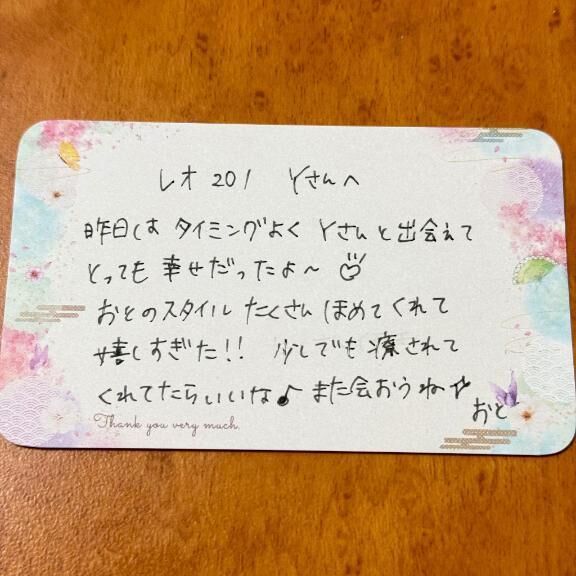 レオ 201 Yさんへ
昨日は タイミングよく Yさんと出会えて
とっても 幸せだったよ〜
おとのスタイル たくさん ほめてくれて
嬉しすぎた!! 少しでも 癒されて
くれてたらいいな♪ また会おうね☆
おと
Thank you very much.